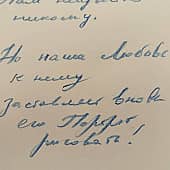 никому.
Но наша Любовь
к нему
Заставляет вновь
его Портрет
рисовать!